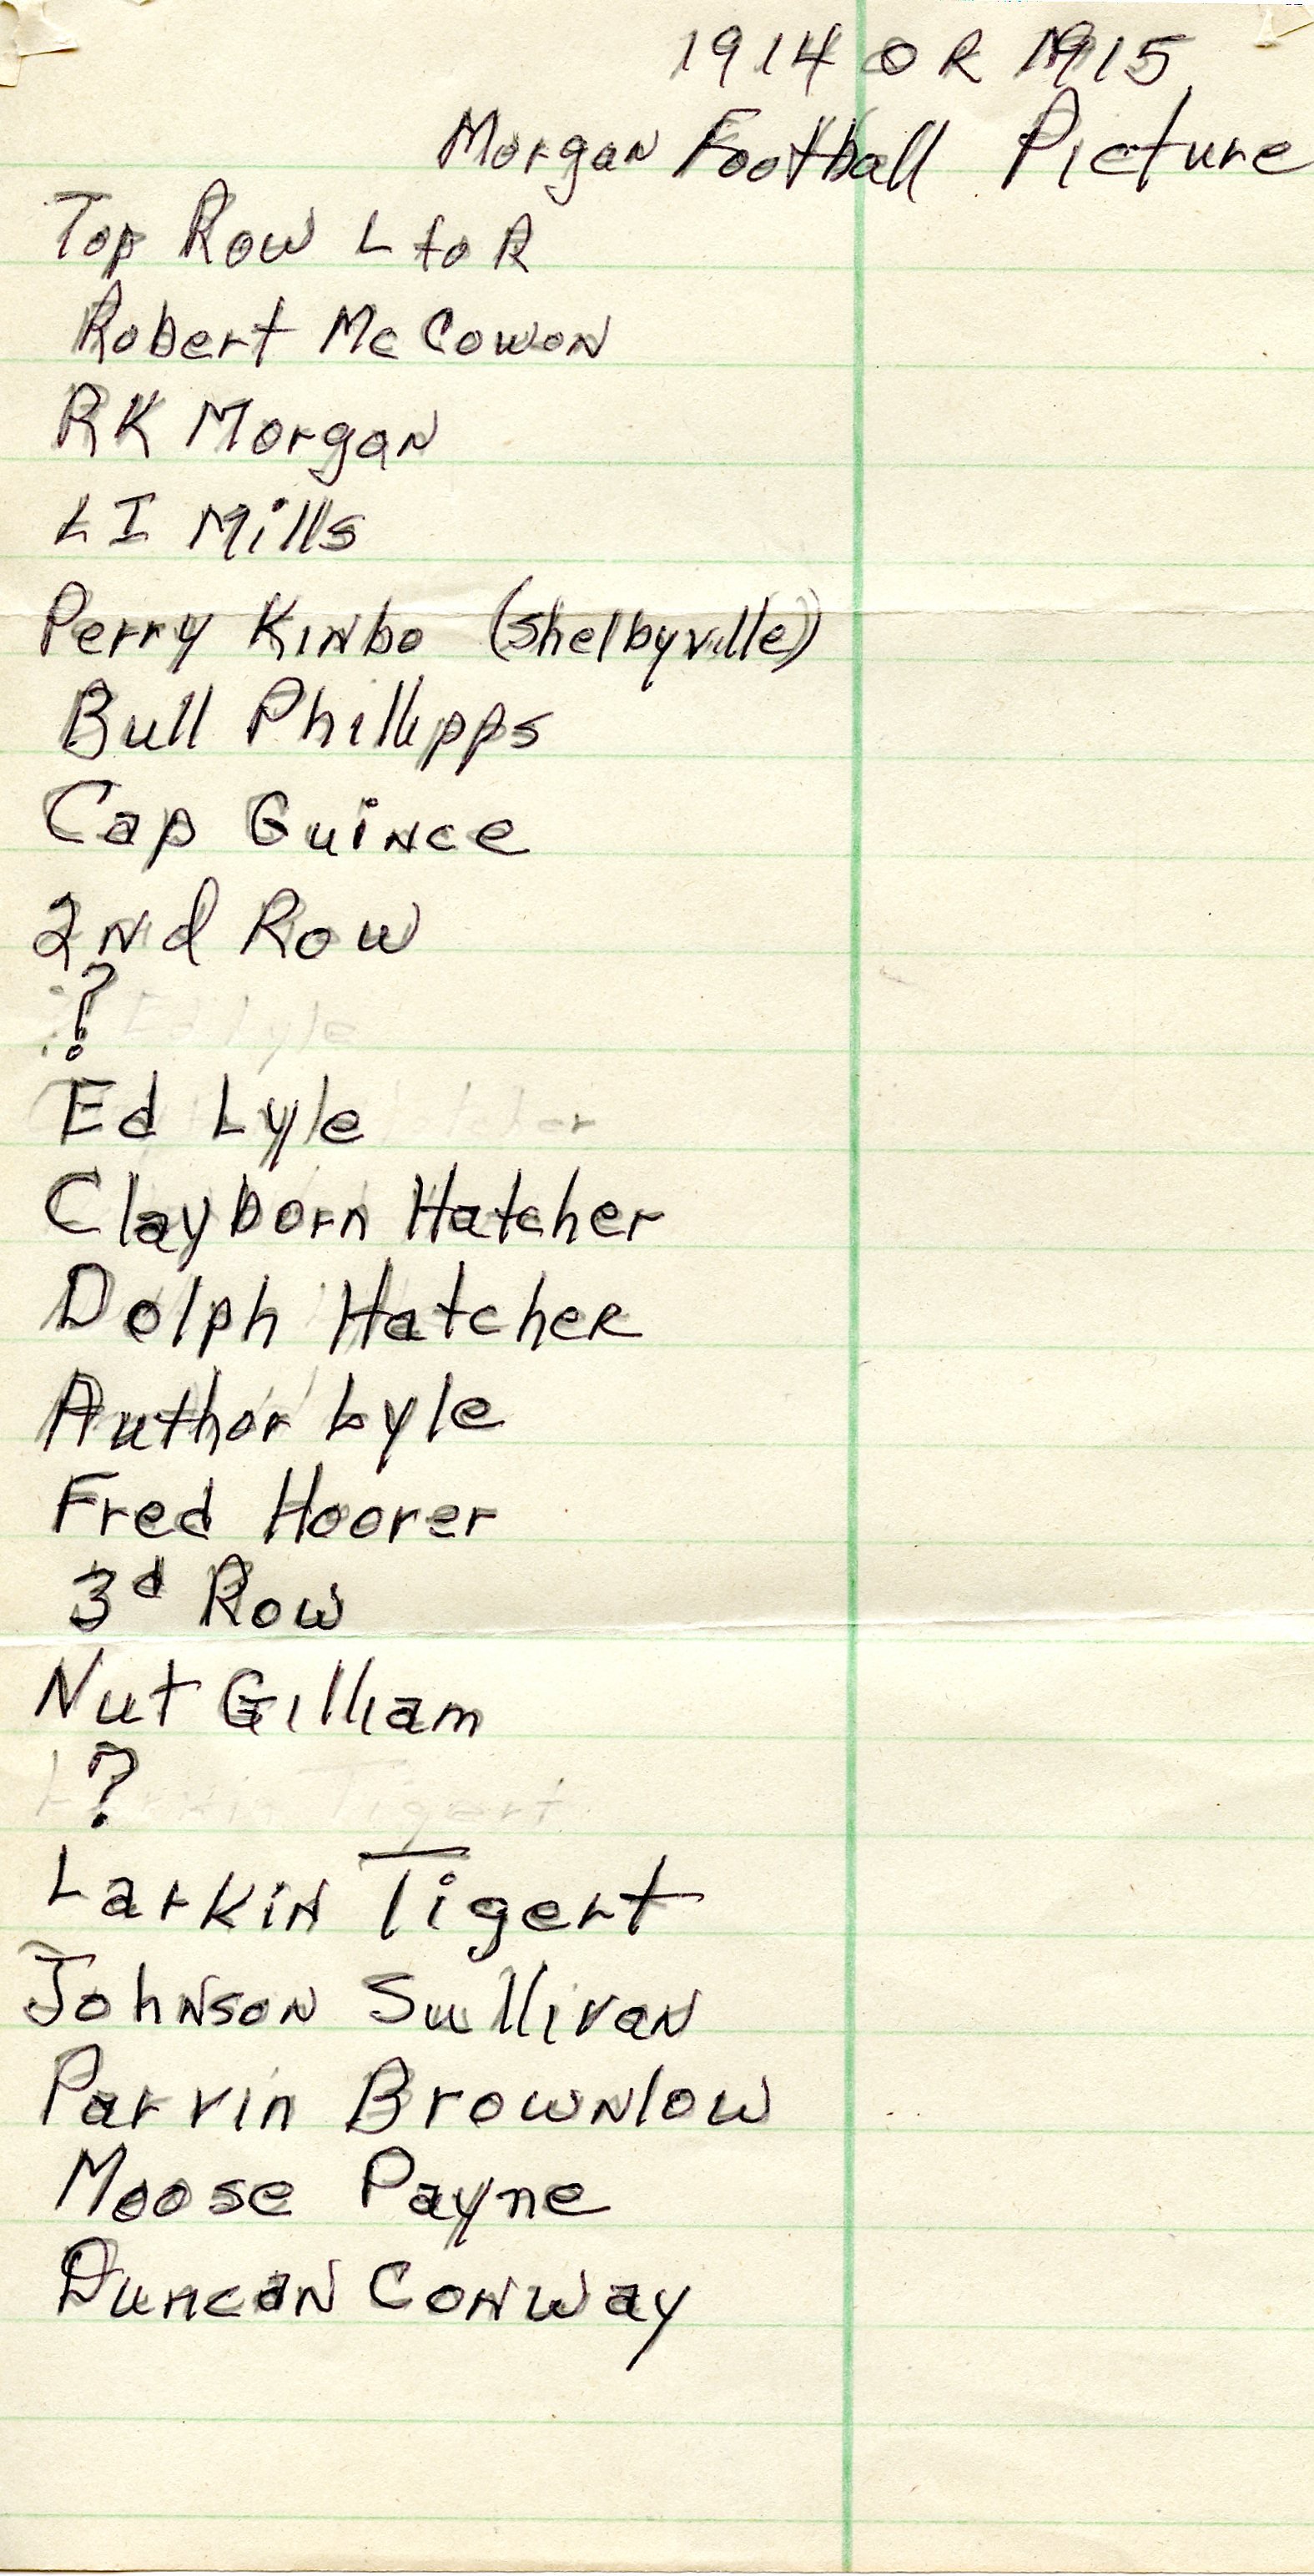 1914 OR 1915
Morgan Football Picture
Top Row L to R
Robert McCowon
RK Morgan
LI Mills
Perry Kinbo (Shelbyville)
Bull Phillipps
Cap Guince
2nd Row
?
Ed Lyle
Clayborn Hatcher
Dolph Hatcher
Author Lyle
Fred Hoover
3d Row
Nut Gilliam
?
Larkin Tigert
Johnson Sullivan
Parvin Brownlow
Moose Payne
Duncan Conway